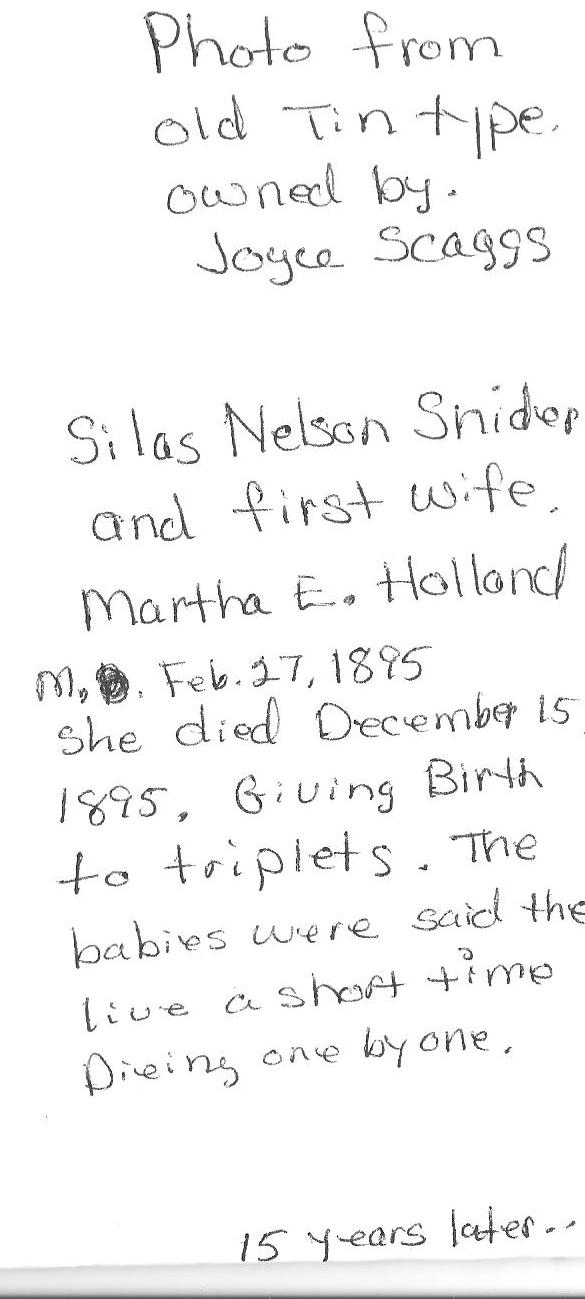 Photo from
old Tin type.
owned by.
Joyce Scaggs
Silas Nelson Snider
and first wife.
Martha E. Holland
M. . Feb. 27, 1895
She died December 15
1895. Giving Birth
to triplets. The
babies were said the
live a short time
Dieing one by one.
15 years later..